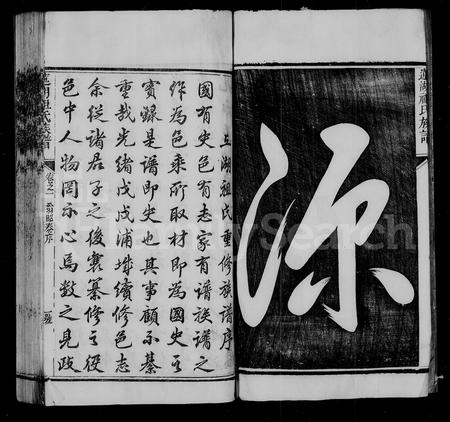 源
蓮湖祖氏族譜
五湖祖氏重修族譜序
國有史邑有志家有譜族譜之
作為邑乘所取材即為國史之
實錄是譜即史也其事顧不綦
重哉光緒戊戌浦城續修邑志
余從諸君子之後襄纂修之役
色中人物罔不心焉數之見政
蓮湖祖氏族譜
卷之一 翁昭泰序
FamilySearch